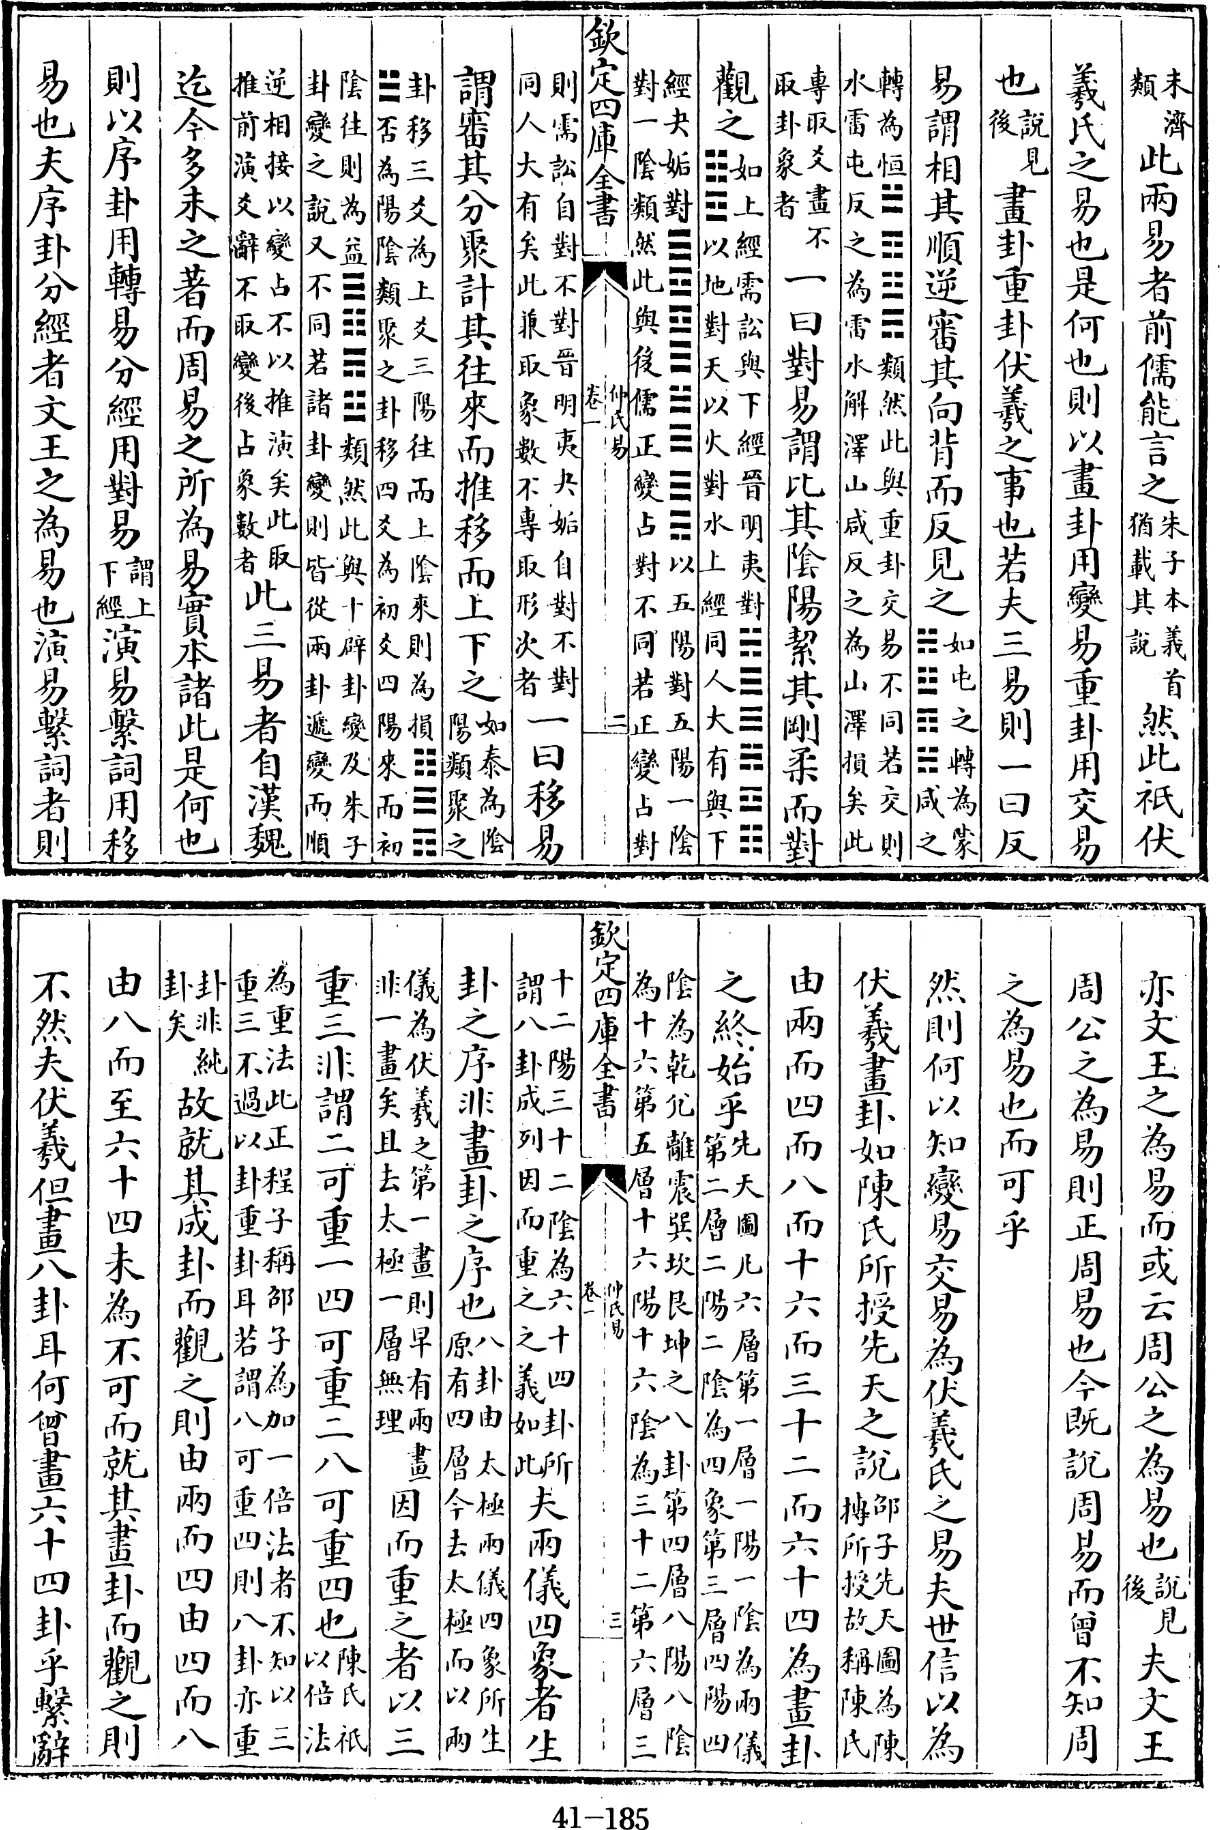 未濟類此兩易者前儒能言之朱子本義首猶載其說然此祇伏
羲氏之易也是何也則以畫卦用變易重卦用交易
也說見後畫卦重卦伏羲之事也若夫三易則一曰反
易謂相其順逆審其向背而反見之如屯之轉為蒙䷂䷃咸之
轉為恒䷞䷟類然此與重卦交易不同若交則
水雷屯反之為雷水解澤山咸反之為山澤損矣此
專取爻畫不取卦象者一曰對易謂比其陰陽絜其剛柔而對
觀之如上經需訟與下經晉明夷對䷄䷅
䷢䷣以地對天以火對水上經同人大有與下
經夬姤對䷌䷍䷪䷫以五陽對五陽一陰
對一陰類然此與後儒正變占對不同若正變占對
欽定四庫全書 仲氏易 卷一 二
則需訟自對不對晉明夷夬姤自對不對
同人大有矣此兼取象數不專取形次者一曰移易
謂審其分聚計其往來而推移而上下之如泰為陰陽類聚之
卦移三爻為上爻三陽往而上陰來則為損䷊䷨
䷋否為陽陰類聚之卦移四爻為初爻四陽來而初
陰往則為益䷋䷩類然此與十辟卦變及朱子
卦變之說又不同若諸卦變則皆從兩卦遞變而順
逆相接以變占不以推演矣此取
推前演爻辭不取變後占象數者此三易者自漢魏
迄今多未之著而周易之所為易實本諸此是何也
則以序卦用轉易分經用對易謂上下經演易繫詞用移
易也夫序卦分經者文王之為易也演易繫詞者則
亦文王之為易而或云周公之為易也說見後夫文王
周公之為易則正周易也今既說周易而曾不知周
之為易也而可乎
然則何以知變易交易為伏羲氏之易夫世信以為
伏羲畫卦如陳氏所授先天之說邵子先天圖為陳摶所授故稱陳氏
由兩而四而八而十六而三十二而六十四為畫卦
之終始乎先天圖凡六層第一層一陽一陰為兩儀
第二層二陽二陰為四象第三層四陽四
陰為乾兌離震巽坎艮坤之八卦第四層八陽八陰
為十六第五層十六陽十六陰為三十二第六層三
欽定四庫全書 仲氏易 卷一 三
十二陽三十二陰為六十四卦所
謂八卦成列因而重之之義如此夫兩儀四象者生
卦之序非畫卦之序也八卦由太極兩儀四象所生
原有四層今去太極而以兩
儀為伏羲之第一畫則早有兩畫
非一畫矣且去太極一層無理因而重之者以三
重三非謂二可重一四可重二八可重四也陳氏祇以倍法
為重法此正程子稱邵子為加一倍法者不知以三
重三不過以卦重卦耳若謂八可重四則八卦亦重
卦非純卦矣故就其成卦而觀之則由兩而四由四而八
由八而至六十四未為不可而就其畫卦而觀之則
不然夫伏羲但畫八卦耳何曾畫六十四卦乎繫辭
41-185